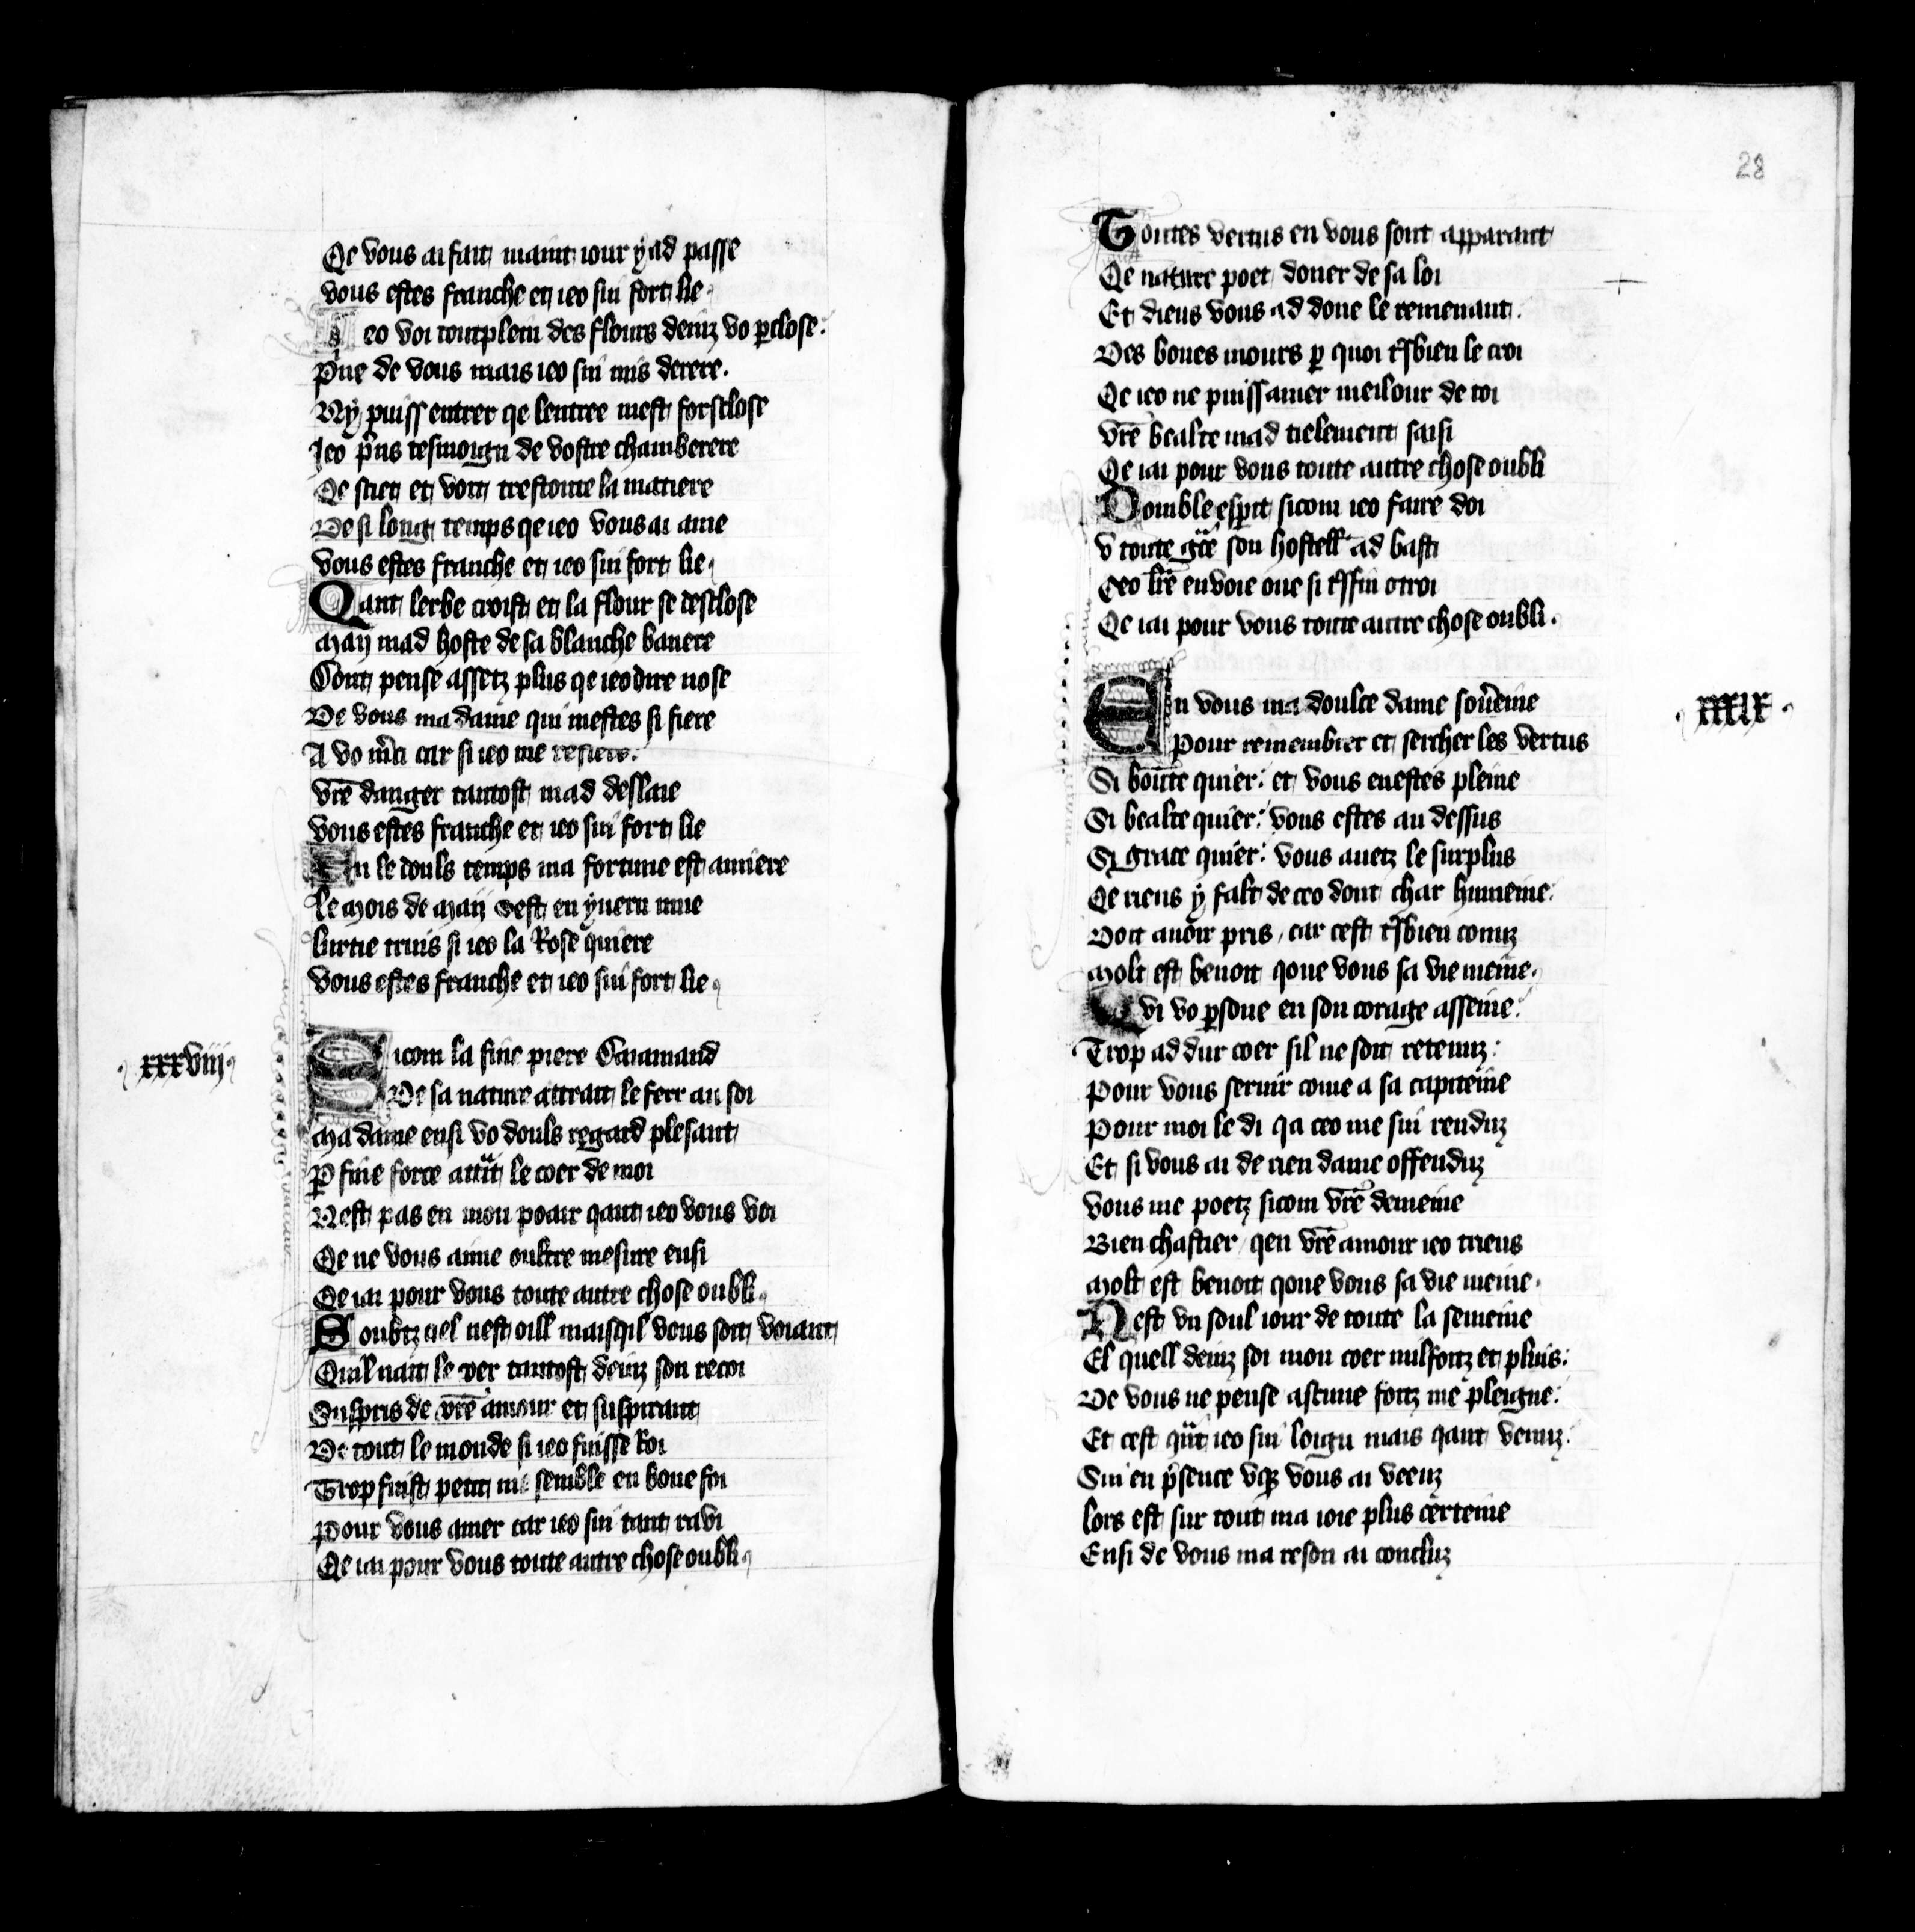 Qe vous ai fait maint iour y ad passe
vous estes franche et ieo sui fort lie
Ieo voi toutplein des flours deinz vo pclose
Pue de vous mais ieo sui mis derere
Ny puiss entrer qe lentree mest forsclose
Jeo pns tesmoign de vostre chamberere
Qe sciet et voit trestoute la matiere
De si long temps qe ieo vous ai ame
vous estes franche et ieo sui fort lie
Qant lerbe croist et la flour se desclose
May mad hoste de sa blanche banere
Sont pense assetz plus qe ieo dire nose
De vous ma dame qui mestes si fiere
A vo mci car si ieo me refiere
vre danger tantost mad deslaie
vous estes franche et ieo sui fort lie
En le douls temps ma fortune est amiere
Le Mois de Maij sest en yuern mue
lurtie truis si ieo la Rose quiere
vous estes franche et ieo sui fort lie
xxxviij
Sicom la fine piere Daiamand
De sa nature attrait le ferr au soi
Ma dame ensi vo douls regard plesant
P fine force attrait le coer de moi
Nest pas en mon poair qant ieo vous voi
Qe ne vous aime oultre mesure ensi
Qe iai pour vous toute autre chose oubli
Soubtz ciel nest oill maisqil vous soit voiant
Qail nait le coer tantost deinz son recoi
Suspris de vre amour et suspirant
De tout le monde si ieo fuisse Roi
Trop fuist petit me semble en bone foi
Pour vous amer car ieo sui tant ravi
Qe iai pour vous toute autre chose oubli
28
Toutes vertus en vous sont apparant
Qe nature poet doner de sa loi
Et dieus vous ad done le remenant
Des bones mours p quoi tsbien le croi
Qe ieo ne puiss amer meilour de toi
vre bealte mad tielement saisi
Qe iai pour vous toute autre chose oubli
Domble esprit sicom ieo faire doi
V toute gce son hostell ad basti
Ceo lre envoie oue si tsfin otroi
Qe iai pour vous toute autre chose oubli
xxxix
En vous ma doulce dame sovereine
Pour remembrer et sercher les vertus
Si bounte quier et vous enestes pleine
Si bealte quier vous estes au dessus
Si grace quier vous auetz le surplus
Qe riens y falt de ceo dont char humeine
Doit auoir pris car cest tsbien conuz
Molt est benoit qoue vous sa vie meine
Qui vo psone en son corage asseine
Trop ad dur coer sil ne soit retenuz
Pour vous seruir come a sa capiteine
Pour moi le di qa ceo me sui renduz
Et si vous ai de rien dame offenduz
vous me poetz sicom vre demeine
Bien chastier qen vre amour ieo trieus
Molt est benoit qoue vous sa vie meine
Nest vn soul iour de toute la semeine
El quell deinz soi mon coer milfoitz et pluis
De vous ne pense ascune foitz me pleigne
Et cest qnt ieo sui loign mais qant venuz
Sui en psence vque vous ai veeuz
lors est sur tout ma ioie plus certeine
Ensi de vous ma reson ai concluz